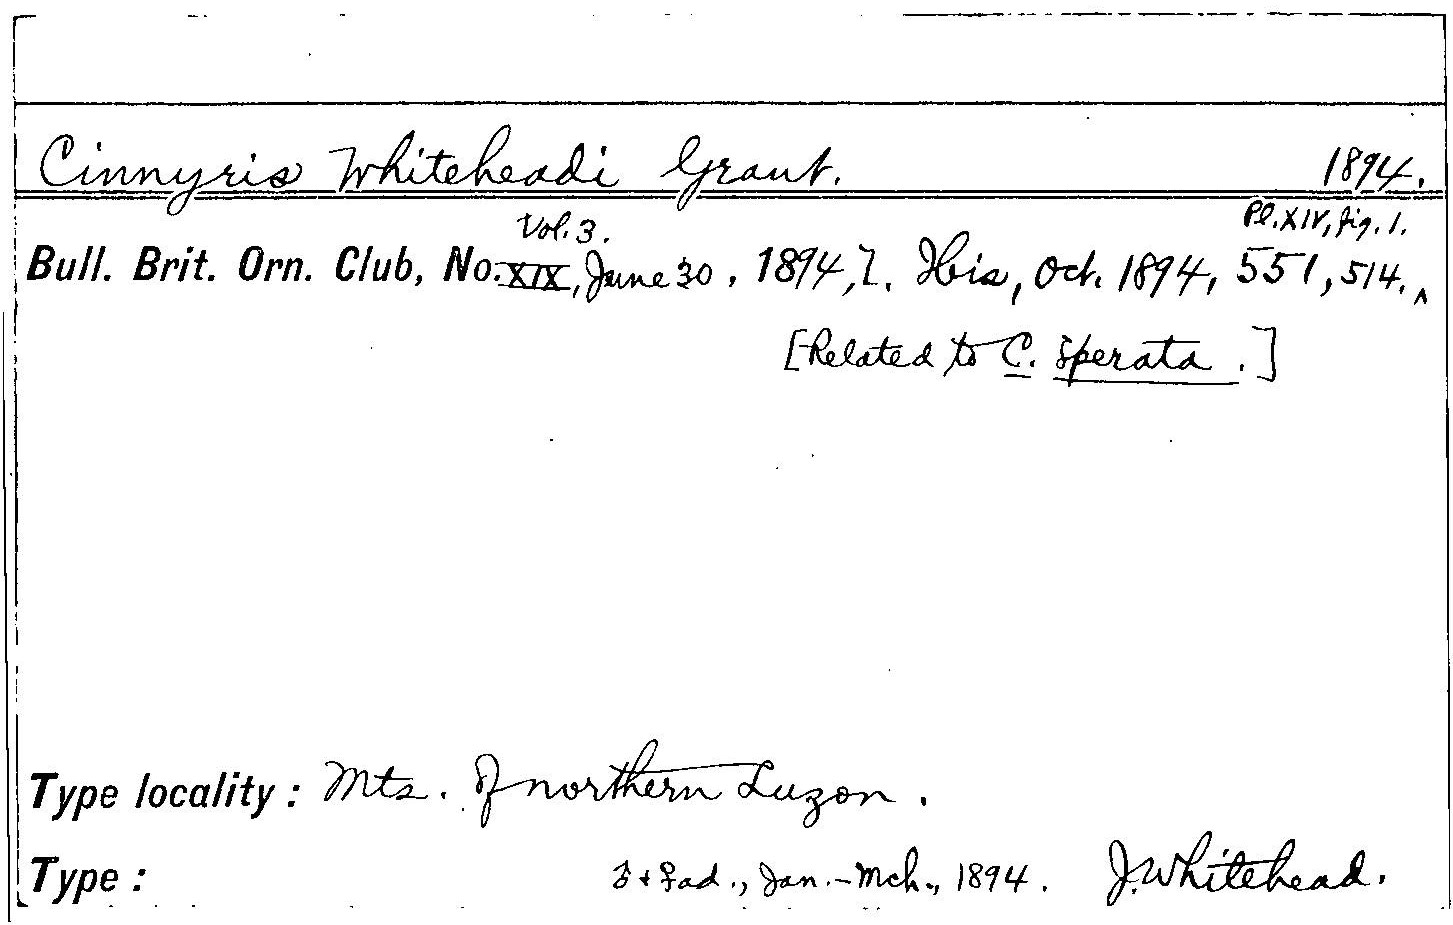 Cinnyris Whiteheadi Grant. 1894.
Vol. 3. Pl. XIV, fig. 1.
Bull. Brit. Orn. Club, No. XIX, June 30, 1894, l. Ibis, Oct. 1894, 551, 514. ^
[Related to C. sperata.]
Type locality: Mts. of northern Luzon.
Type: ♂ + ♀ ad., Jan.-Mch., 1894. J. Whitehead.